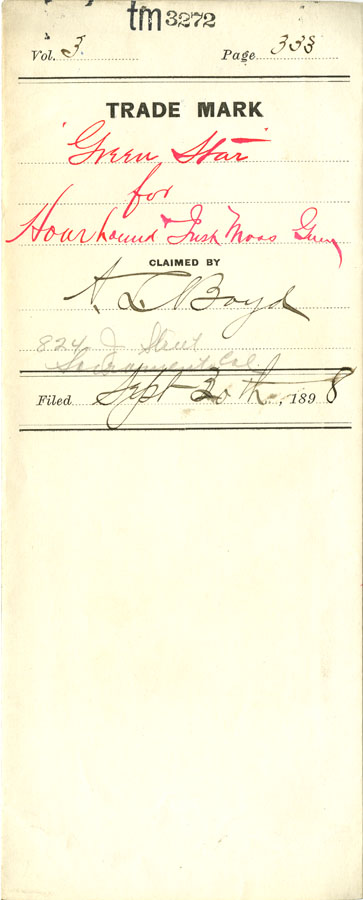 tm 3272
Vol. 3. Page 333
TRADE MARK
"Green Star"
for
Hoarhound & Irish Moss Gum
CLAIMED BY
A. L. Boyd
824 J Street
Sacramento Cal
Filed Sept 20th, 1898